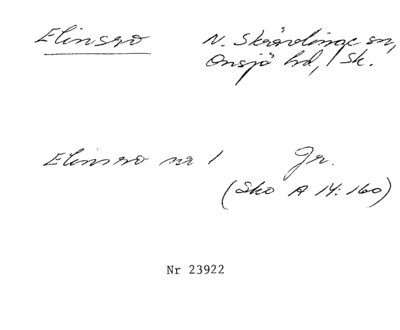 Elinsro N. Skrävlinge sn,
Onsjö hd, Sk.
Elinsro nr 1 Gr.
(Sko A 14:160)
Nr 23922